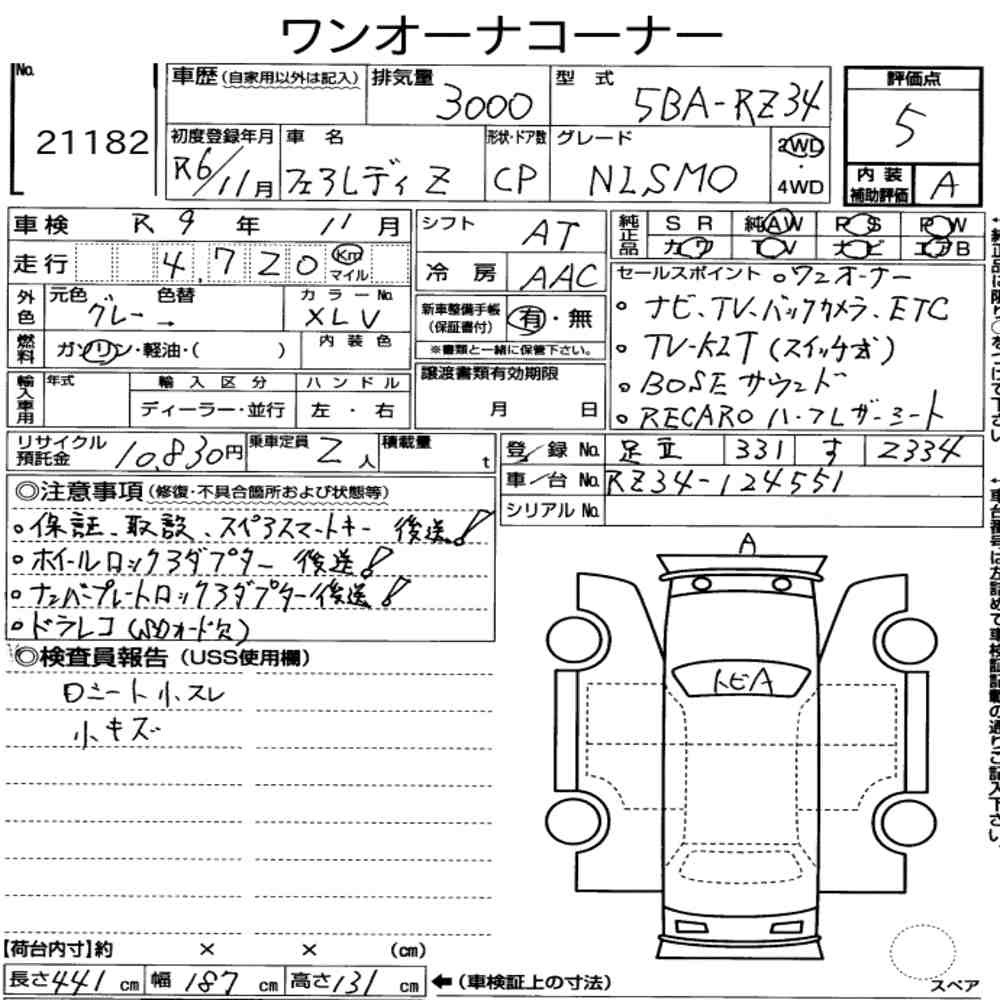 ワンオーナコーナー
No. 21182
車歴(自家用以外は記入) 排気量 3000 型式 5BA-RZ34 評価点 5
初度登録年月 R6/11月 車名 フェアレディZ 形状・ドア数 CP グレード NISMO 2WD・4WD 内装補助評価 A
車検 R9年 11月
走行 4,720 Km マイル
外色 元色 グレー → 色替 カラーNo. XLV
燃料 ガソリン・軽油・( ) 内装色
輸入車用 年式 輸入区分 ディーラー・並行 ハンドル 左・右
シフト AT
冷房 AAC
新車整備手帳(保証書付) 有・無
※書類と一緒に保管下さい。
譲渡書類有効期限 月 日
純正品 SR 純AW PS PW
カワ TV ナビ エアB
セールスポイント ◦ワンオーナー
◦ナビ、TV、バックカメラ、ETC
◦TV-KIT(スイッチ式)
◦BOSEサウンド
◦RECAROハーフレザーシート
リサイクル預託金 10,830円 乗車定員 2人 積載量 t
登録No. 足立 331 す 2334
車台No. RZ34-124551
シリアルNo.
◎注意事項(修復・不具合箇所および状態等)
◦保証、取説、スペアスマートキー 後送!
◦ホイールロックアダプター 後送!
◦ナンバープレートロックアダプター後送!
◦ドラレコ(SDカード欠)
◎検査員報告(USS使用欄)
Dシート小スレ
小キズ
A
トビA
【荷台内寸】約 × × (cm)
長さ441cm 幅187cm 高さ131cm ←(車検証上の寸法)
スペア